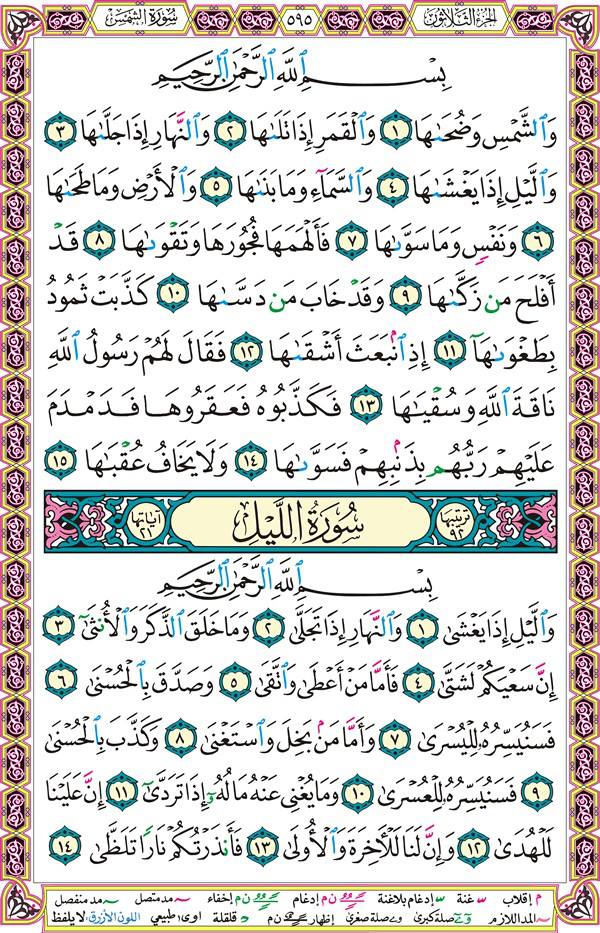 الجزء الثلاثون ٥٩٥ سورة الشمس
بِسْمِ ٱللَّهِ ٱلرَّحْمَٰنِ ٱلرَّحِيمِ
وَٱلشَّمْسِ وَضُحَىٰهَا ١ وَٱلْقَمَرِ إِذَا تَلَىٰهَا ٢ وَٱلنَّهَارِ إِذَا جَلَّىٰهَا ٣
وَٱلَّيْلِ إِذَا يَغْشَىٰهَا ٤ وَٱلسَّمَآءِ وَمَا بَنَىٰهَا ٥ وَٱلْأَرْضِ وَمَا طَحَىٰهَا
٦ وَنَفْسٍ وَمَا سَوَّىٰهَا ٧ فَأَلْهَمَهَا فُجُورَهَا وَتَقْوَىٰهَا ٨ قَدْ
أَفْلَحَ مَن زَكَّىٰهَا ٩ وَقَدْ خَابَ مَن دَسَّىٰهَا ١٠ كَذَّبَتْ ثَمُودُ
بِطَغْوَىٰهَآ ١١ إِذِ ٱنۢبَعَثَ أَشْقَىٰهَا ١٢ فَقَالَ لَهُمْ رَسُولُ ٱللَّهِ
نَاقَةَ ٱللَّهِ وَسُقْيَٰهَا ١٣ فَكَذَّبُوهُ فَعَقَرُوهَا فَدَمْدَمَ
عَلَيْهِمْ رَبُّهُم بِذَنۢبِهِمْ فَسَوَّىٰهَا ١٤ وَلَا يَخَافُ عُقْبَٰهَا ١٥
ترتيبها ٩٢ سُورَةُ اللَّيْلِ آياتها ٢١
بِسْمِ ٱللَّهِ ٱلرَّحْمَٰنِ ٱلرَّحِيمِ
وَٱلَّيْلِ إِذَا يَغْشَىٰ ١ وَٱلنَّهَارِ إِذَا تَجَلَّىٰ ٢ وَمَا خَلَقَ ٱلذَّكَرَ وَٱلْأُنثَىٰٓ ٣
إِنَّ سَعْيَكُمْ لَشَتَّىٰ ٤ فَأَمَّا مَنْ أَعْطَىٰ وَٱتَّقَىٰ ٥ وَصَدَّقَ بِٱلْحُسْنَىٰ ٦
فَسَنُيَسِّرُهُۥ لِلْيُسْرَىٰ ٧ وَأَمَّا مَنۢ بَخِلَ وَٱسْتَغْنَىٰ ٨ وَكَذَّبَ بِٱلْحُسْنَىٰ
٩ فَسَنُيَسِّرُهُۥ لِلْعُسْرَىٰ ١٠ وَمَا يُغْنِى عَنْهُ مَالُهُۥٓ إِذَا تَرَدَّىٰٓ ١١ إِنَّ عَلَيْنَا
لَلْهُدَىٰ ١٢ وَإِنَّ لَنَا لَلْءَاخِرَةَ وَٱلْأُولَىٰ ١٣ فَأَنذَرْتُكُمْ نَارًا تَلَظَّىٰ ١٤
م إقلاب غنة إدغام بلاغنة ن م إدغام ن م إخفاء مد متصل مد منفصل
المد اللازم صلة كبرى صلة صغرى إظهار ن م قلقلة اوى طبيعي اللون الأزرق: لا يلفظ